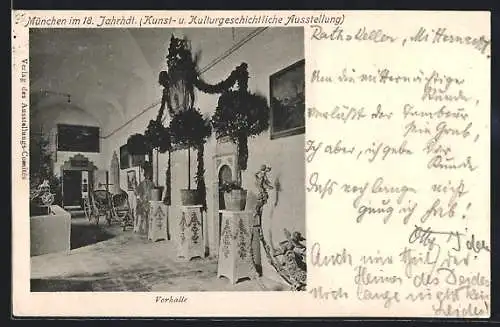 München im 18. Jahrhdt. (Kunst- u. Kulturgeschichtliche Ausstellung)
Verlag des Ausstellungs-Comités
Vorhalle
Rathskeller, Mitternacht
Um die mitternächtige
Stunde,
verläßt der Tambour
sein Grab,
Ich aber, ich gebe
Kunde
Daß noch lange nicht
genug ich hab!
Auch mir theil der
Heimo des Deides
Noch lange nicht